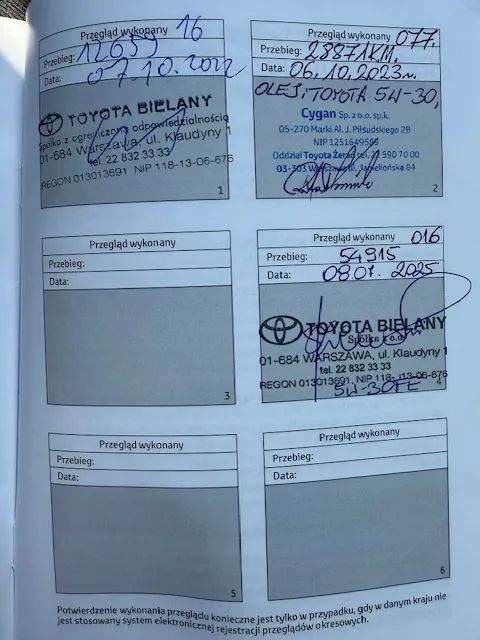 Przegląd wykonany 16
Przebieg: 12659
Data: 07.10.2022
TOYOTA BIELANY
Spółka z ograniczoną odpowiedzialnością
01-684 Warszawa, ul. Klaudyny 1
tel. 22 832 33 33
REGON 013013691 NIP 118-13-06-676
1
Przegląd wykonany 077.
Przebieg: 28871KM.
Data: 06.10.2023r.
OLEJ: TOYOTA 5W-30,
Cygan Sp. z o.o. sp.k.
05-270 Marki Al. J. Piłsudskiego 2B
NIP 1251649599
Oddział Toyota Żerań tel. 22 590 70 00
03-303 Warszawa ul. Jagiellońska 84
2
Przegląd wykonany
Przebieg:
Data:
3
Przegląd wykonany 016
Przebieg: 54915
Data: 08.07.2025
TOYOTA BIELANY
Spółka z o.o.
01-684 WARSZAWA, ul. Klaudyny 1
tel. 22 832 33 33
REGON 013013691, NIP 118-113-06-676
5W-30FE
4
Przegląd wykonany
Przebieg:
Data:
5
Przegląd wykonany
Przebieg:
Data:
6
Potwierdzenie wykonania przeglądu konieczne jest tylko w przypadku, gdy w danym kraju nie
jest stosowany system elektronicznej rejestracji przeglądów okresowych.